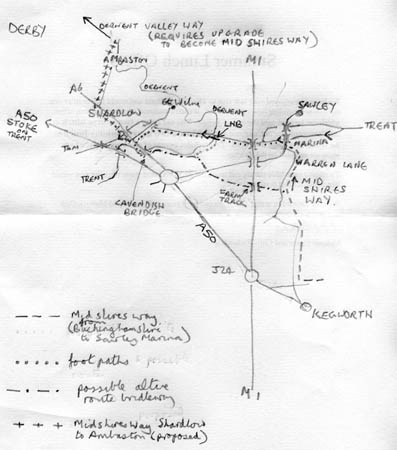 DERBY
DERWENT VALLEY WAY
(REQUIRES UPGRADE
TO BECOME MID SHIRES WAY)
AMBASTON
DERWENT
M1
A6
SHARDLOW
Gt Wilne
DERWENT
LNB
SAWLEY
TRENT
MARINA
A50
STOKE
ON
TRENT
T&M
TRENT
CAVENDISH
BRIDGE
WARREN LANE
FARM
TRACK
MID
SHIRES
WAY
A50
J24
KEGWORTH
M1
Midshires way
from
(Buckinghamshire
to Sawley Marina)
foot paths
possible altive
route bridleway
Midshires Way Shardlow
to Ambaston (proposed)